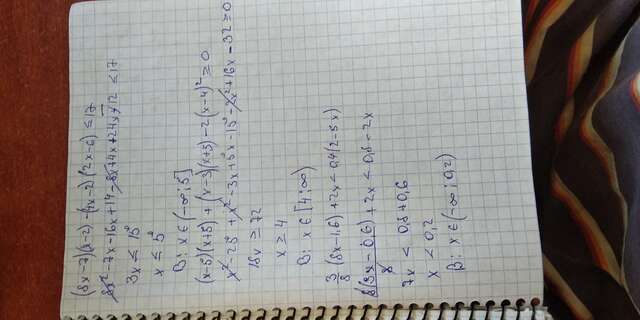 (8x-7)(x-2) - (4x-2)(2x-6) ≤ 17
8x² - 7x - 16x + 14 - 8x² + 4x + 24x - 12 ≤ 17
3x ≤ 15
x ≤ 5
В: x ∈ (-∞; 5]
(x-5)(x+5) + (x-3)(x+5) - 2(x-4)² ≥ 0
x² - 25 + x² - 3x + 5x - 15 - 2x² + 16x - 32 ≥ 0
18x ≥ 72
x ≥ 4
В: x ∈ [4; ∞)
3/8 (8x - 1,6) + 2x < 0,4(2-5x)
8(3x - 0,6)/8 + 2x < 0,8 - 2x
7x < 0,8 + 0,6
x < 0,2
В: x ∈ (-∞; 0,2)